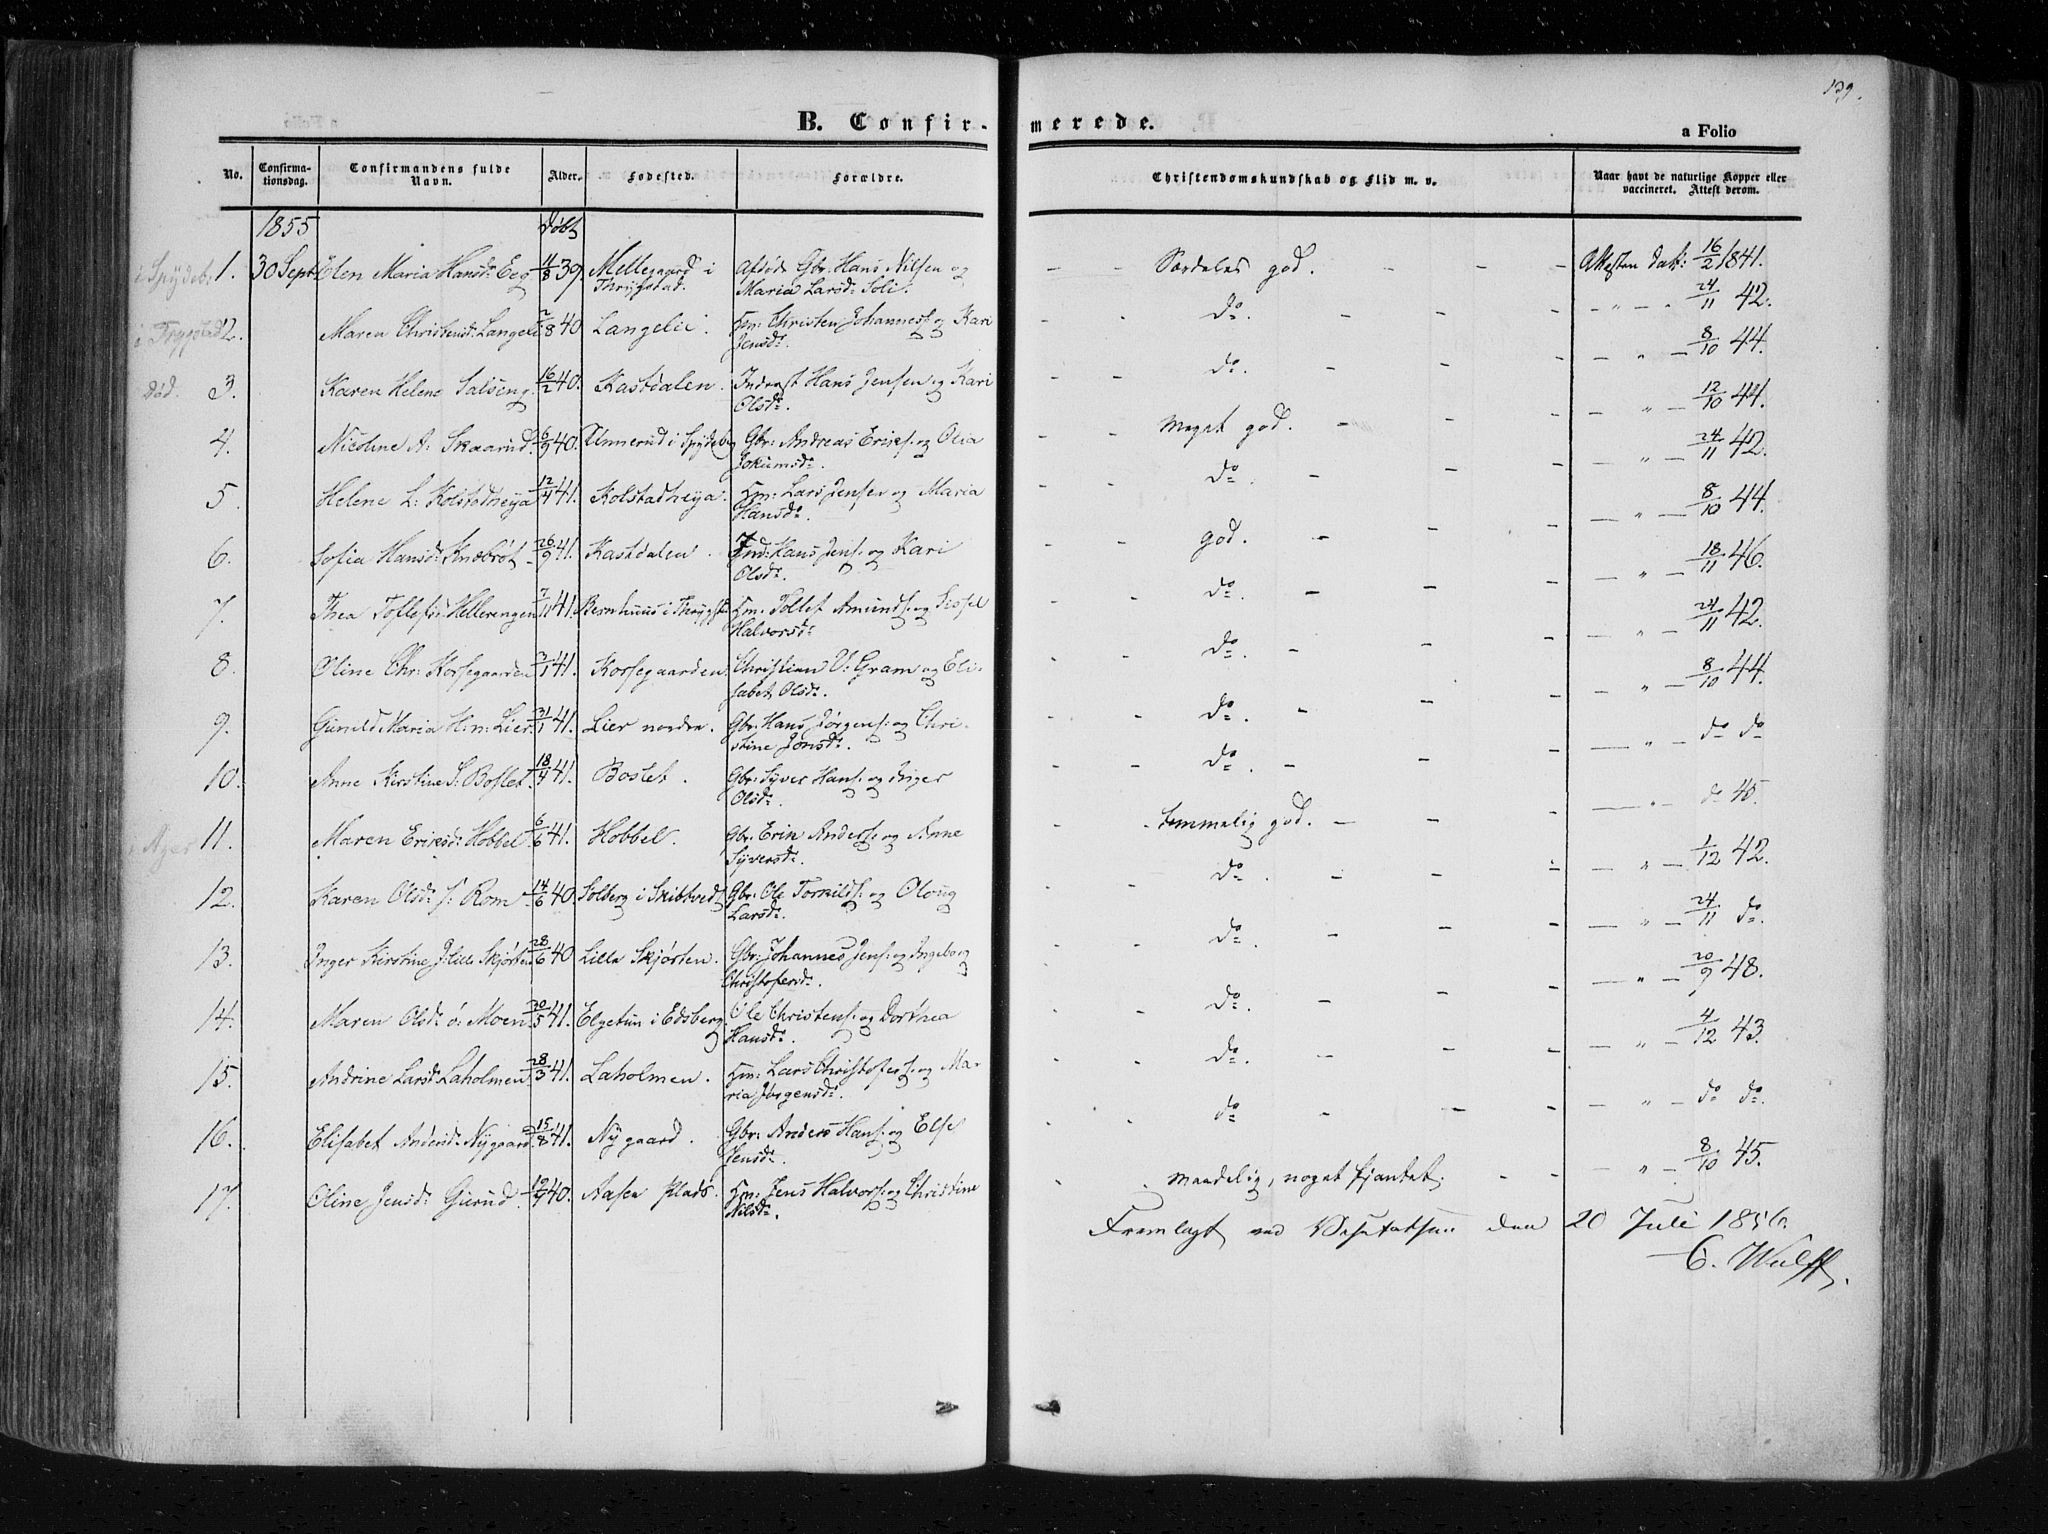 139.
B. Confirmerede.
a Folio
No. Confirmationsdag. Confirmandens fulde Navn. Alder. Fødested. Forældre. Christendomskundskab og Flid m. v. Naar havt de naturlige Kopper eller vaccineret. Attest derom.
1855 Døbt
i Spydeb. 1. 30 Sept: Elen Maria Hansd: Eeg 11/8 39. Mellegaard i Thrygstad. Afdøde Gbr: Hans Nilsen og Maria Larsd: Soli. – – Særdeles god. – – – Attesten dat: 16/2 1841.
i Trygstad 2. Maren Christensd: Langeli 2/8 40 Langelie. Hm: Christen Johanness: og Kari Jensd: – – do. – – – " – " 24/11 42.
Død. 3. Karen Helene Salseng. 16/2 40. Kastdalen. Inderst Hans Jensen og Kari Olsd: – – do. – – – – " – 8/10 44.
4. Nicoline A: Skaarud. 6/9 40. Unnerud i Spydeb. Gbr: Andreas Eriks: og Olia Jokumsd: – – Meget god. – – – – " – 12/10 44.
5. Helene L: Kolstadhøya 12/4 41. Kolstadhøya. Hm: Lars Jensen og Maria Hansd: – – do. – – – – " – 24/11 42.
6. Sofia Hansd: Knæbrøt 26/9 41. Kastdalen. Ind: Hans Jens: og Kari Olsd: – – god. – – – – " – 8/10 44.
7. Thea Tollefsd: Hellerengen 7/11 41. Bernhuus i Thrygst. Hm: Tollef Amunds: og Sissel Halvorsd: – – do. – – – – " – 18/11 46.
8. Oline Chr: Korsegaarden 3/1 41. Korsegaarden. Christian V: Gram og Elisabet Olsd: – – do. – – – – " – 24/11 42.
9. Gunild Maria H: n: Lier. 31/1 41. Lier nordre. Gbr: Hans Jørgens: og Christine Jonsd: – – do. – – – – " – 8/10 44.
10. Anne Kirstine S: Boslet. 18/4 41. Boslet. Gbr: Syver Hans: og Inger Olsd: – – do. – – – – " – do do
i Agers 11. Maren Eriksd: Hobbel. 6/6 41. Hobbel. Gbr: Erik Anders: og Anne Syversd: – – temmelig god. – – – – " – do 45.
12. Karen Olsd: s: Rom 14/6 40. Solberg i Skibtvedt Gbr: Ole Torkilds: og Oloug Larsd: – – do. – – – – " – 1/12 42.
13. Inger Kirstine J: lille Skjørten 28/6 40 Lille Skjørten. Gbr: Johannes Jens: og Ingeborg Christofersd: – – do. – – – – " – 24/11 do.
14. Maren Olsd: ø: Moen. 30/5 41. Elgetun i Edsberg. Ole Christens: og Dorthea Hansd: – – do. – – – – " – 20/9 48.
15. Andrine Larsd: Laholmen 28/3 41. Laholmen. Hm: Lars Christofers: og Maria Jørgensd: – – do. – – – – " – 4/12 43.
16. Elisabet Andersd: Nygaard. 15/8 41. Nygaard. Gbr: Anders Hans: og Else Jensd: – – do – – – – " – do do.
17. Oline Jensd: Gierud. 12/9 40. Aasen plads. Hm: Jens Halvors: og Christine Nilsd: – – maadelig, noget fjantet. – – – " – 8/10 45.
Fremlagt ved Visitatsen den 20 Juli 1856.
C. Wulff.